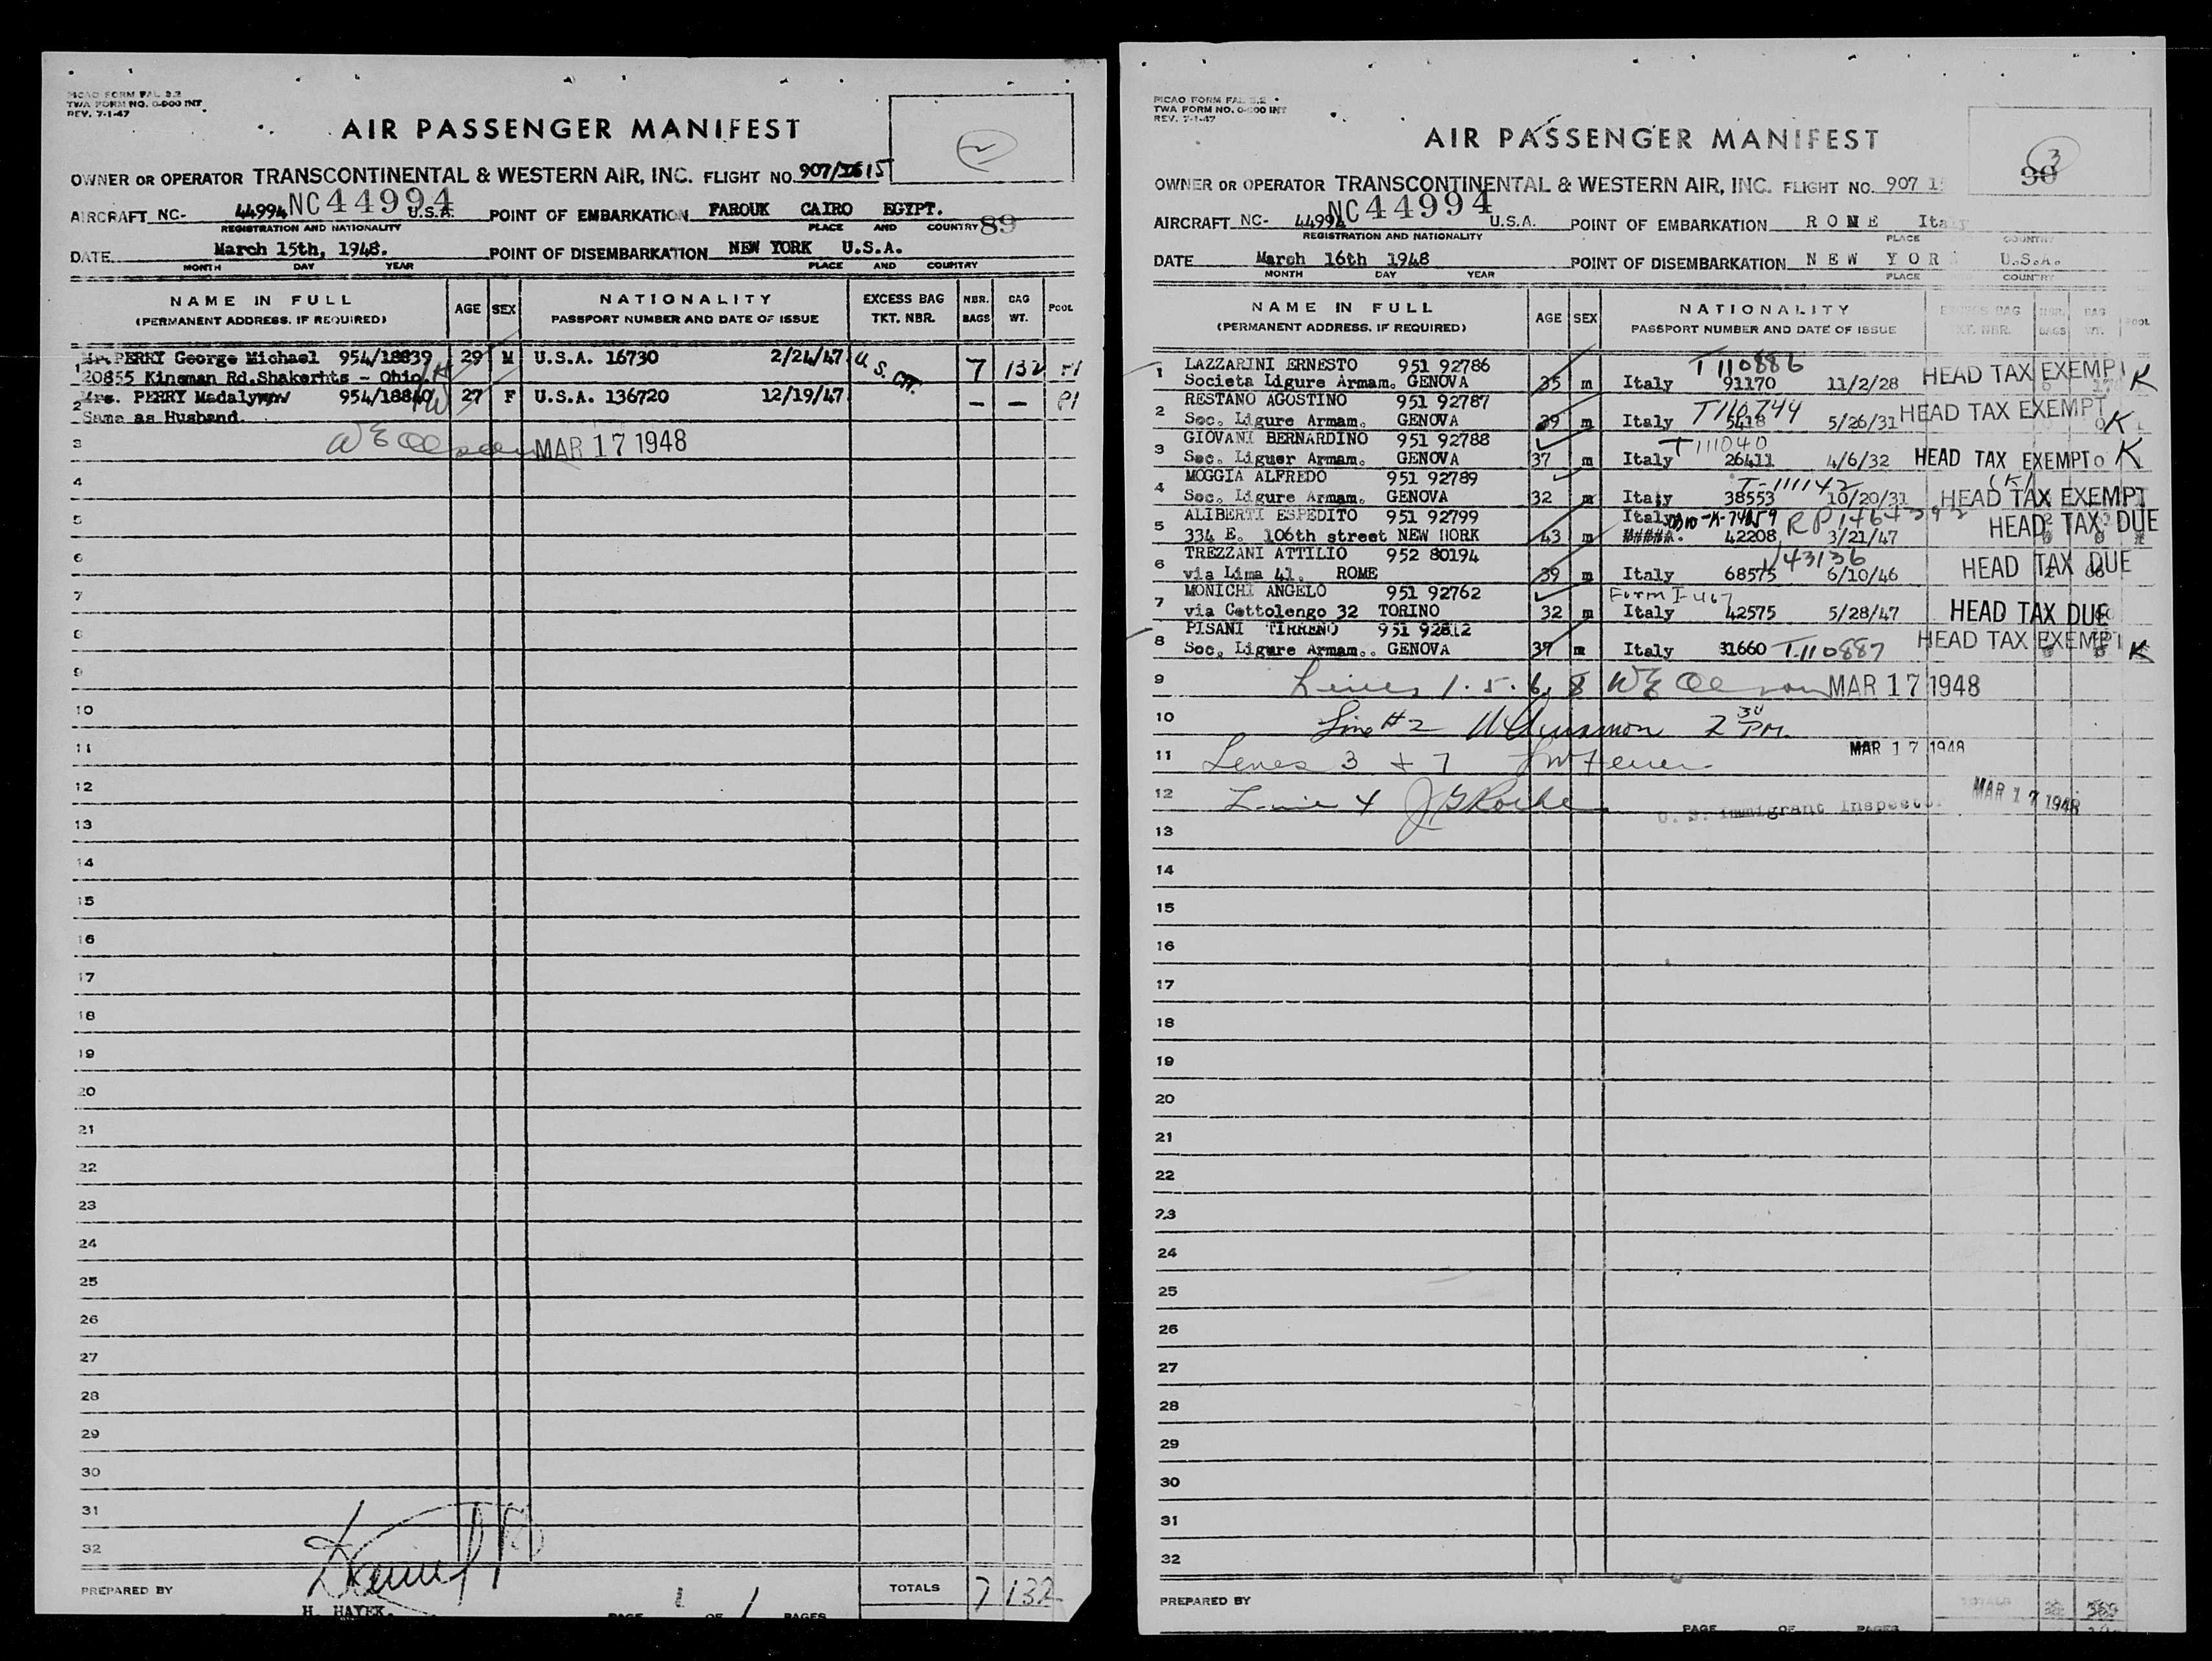 PICAO FORM FAL 2.2
TWA FORM NO. 0-800 INT
REV. 7-1-47
AIR PASSENGER MANIFEST
2
OWNER OR OPERATOR TRANSCONTINENTAL & WESTERN AIR, INC. FLIGHT NO. 907/15
AIRCRAFT NC- 44994 NC44994 U.S.A. POINT OF EMBARKATION FAROUK CAIRO EGYPT.
REGISTRATION AND NATIONALITY PLACE AND COUNTRY 89
DATE March 15th, 1948. POINT OF DISEMBARKATION NEW YORK U.S.A.
MONTH DAY YEAR PLACE AND COUNTRY
NAME IN FULL AGE SEX NATIONALITY EXCESS BAG NBR. BAG POOL
(PERMANENT ADDRESS. IF REQUIRED) PASSPORT NUMBER AND DATE OF ISSUE TKT. NBR. BAGS WT.
1 Mr. PERRY George Michael 954/18839 29 M U.S.A. 16730 2/24/47 U.S. CIT. 7 132 P1
20855 Kinsman Rd.Shakerhts - Ohio. H
2 Mrs. PERRY Madalynn 954/18840 27 F U.S.A. 136720 12/19/47 — — P1
Same as Husband. W
3 W E Olson MAR 17 1948
4
5
6
7
8
9
10
11
12
13
14
15
16
17
18
19
20
21
22
23
24
25
26
27
28
29
30
31
32
PREPARED BY TOTALS 7 132
H. HAYEK. PAGE 1 OF 1 PAGES
PICAO FORM FAL 2.2
TWA FORM NO. 0-800 INT
REV. 7-1-47
AIR PASSENGER MANIFEST
3
90
OWNER OR OPERATOR TRANSCONTINENTAL & WESTERN AIR, INC. FLIGHT NO. 907 1
AIRCRAFT NC- 44994 NC44994 U.S.A. POINT OF EMBARKATION ROME Ita
REGISTRATION AND NATIONALITY PLACE COUNTRY
DATE March 16th 1948 POINT OF DISEMBARKATION NEW YOR U.S.A.
MONTH DAY YEAR PLACE COUNTRY
NAME IN FULL AGE SEX NATIONALITY EXCESS BAG NBR. BAG POOL
(PERMANENT ADDRESS. IF REQUIRED) PASSPORT NUMBER AND DATE OF ISSUE TKT. NBR. BAGS WT.
1 LAZZARINI ERNESTO 951 92786 T110886
Societa Ligure Armam. GENOVA 35 m Italy 91170 11/2/28 HEAD TAX EXEMPT K
2 RESTANO AGOSTINO 951 92787 T110744
Soc. Ligure Armam. GENOVA 39 m Italy 5418 5/26/31 HEAD TAX EXEMPT K
3 GIOVANI BERNARDINO 951 92788 T111040
Soc. Liguer Armam. GENOVA 37 m Italy 26411 4/6/32 HEAD TAX EXEMPT K
4 MOGGIA ALFREDO 951 92789 T-111142 (K)
Soc. Ligure Armam. GENOVA 32 m Italy 38553 10/20/31 HEAD TAX EXEMPT
5 ALIBERTI ESPEDITO 951 92799 Italy
334 E. 106th street NEW IIORK 43 m #####. 42208 3/21/47 HEAD TAX DUE
6 TREZZANI ATTILIO 952 80194 V43136
via Lima 41. ROME 39 m Italy 68575 6/10/46 HEAD TAX DUE
7 MONICHI ANGELO 951 92762 Form I-467
via Cottolengo 32 TORINO 32 m Italy 42575 5/28/47 HEAD TAX DUE
8 PISANI TIRRENO 951 92812
Soc. Ligure Armam.. GENOVA 37 m Italy 31660 T.110887 HEAD TAX EXEMPT K
9 Lines 1. 5. 6. 8 W E Olson MAR 17 1948
10 Line #2 2 30 PM.
11 Lines 3 + 7 MAR 17 1948
12 Line 4 J G Roche U. S. Immigrant Inspector MAR 17 1948
13
14
15
16
17
18
19
20
21
22
23
24
25
26
27
28
29
30
31
32
PREPARED BY TOTALS
PAGE OF PAGES